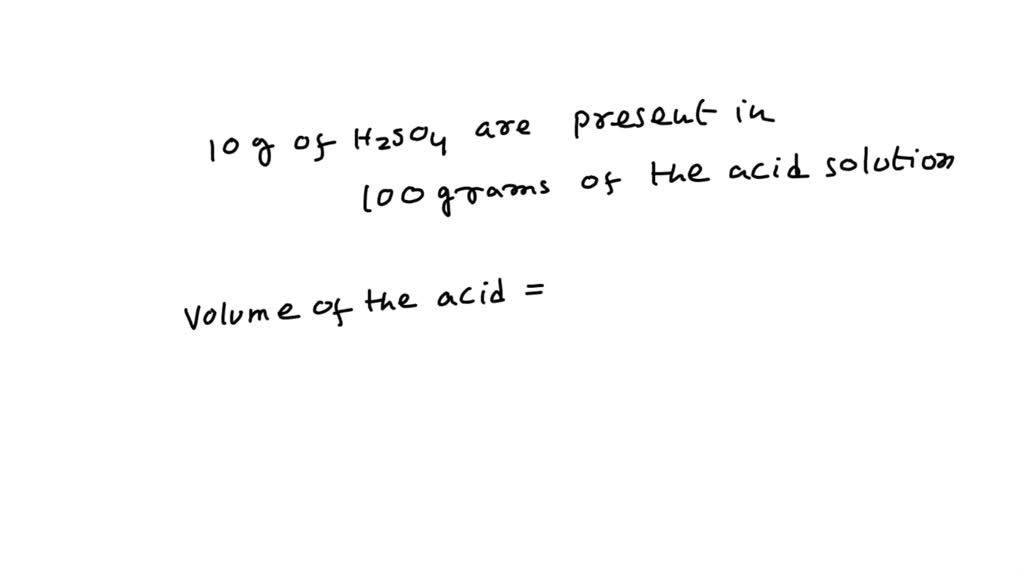 10 g of H2SO4 are present in
100 grams of the acid solution
Volume of the acid =